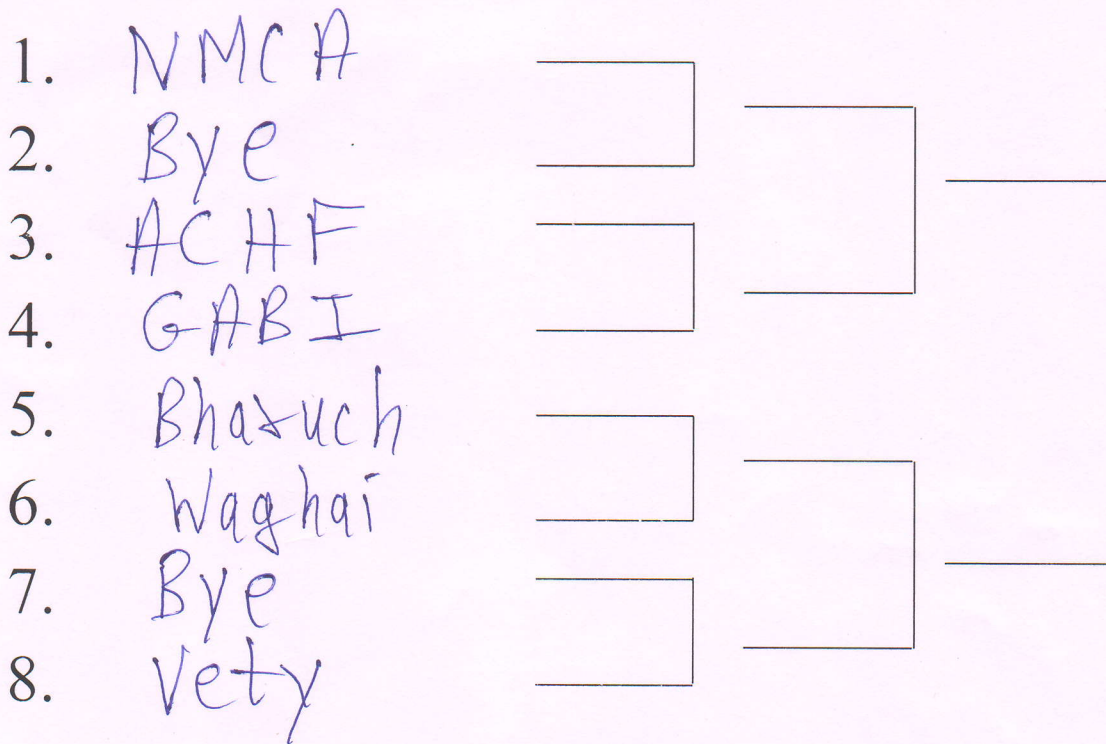 1. NMCA
2. Bye
3. ACHF
4. GABI
5. Bharuch
6. Waghai
7. Bye
8. Vety